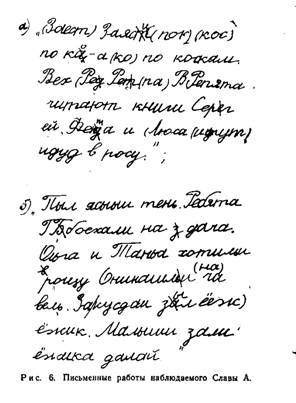 а) „(Зает) Залети (пок) (кос)
по кац-а (ко) по кочкам.
Вех (Рез Реп (па) В Репята.
читают книги Серег
ей. Федта и Люса (идут)
идуд в росу.";
б) „Пыл ясныи тень. Ребята
ГБбоехали на з дага.
Оьга и Таньа хотили
роицу Онинашлы (на) га
вель. Закусдаи залеёж)
ёжик. Малыши зали
ёжика далай"
Рис. 6. Письменные работы наблюдаемого Славы А.